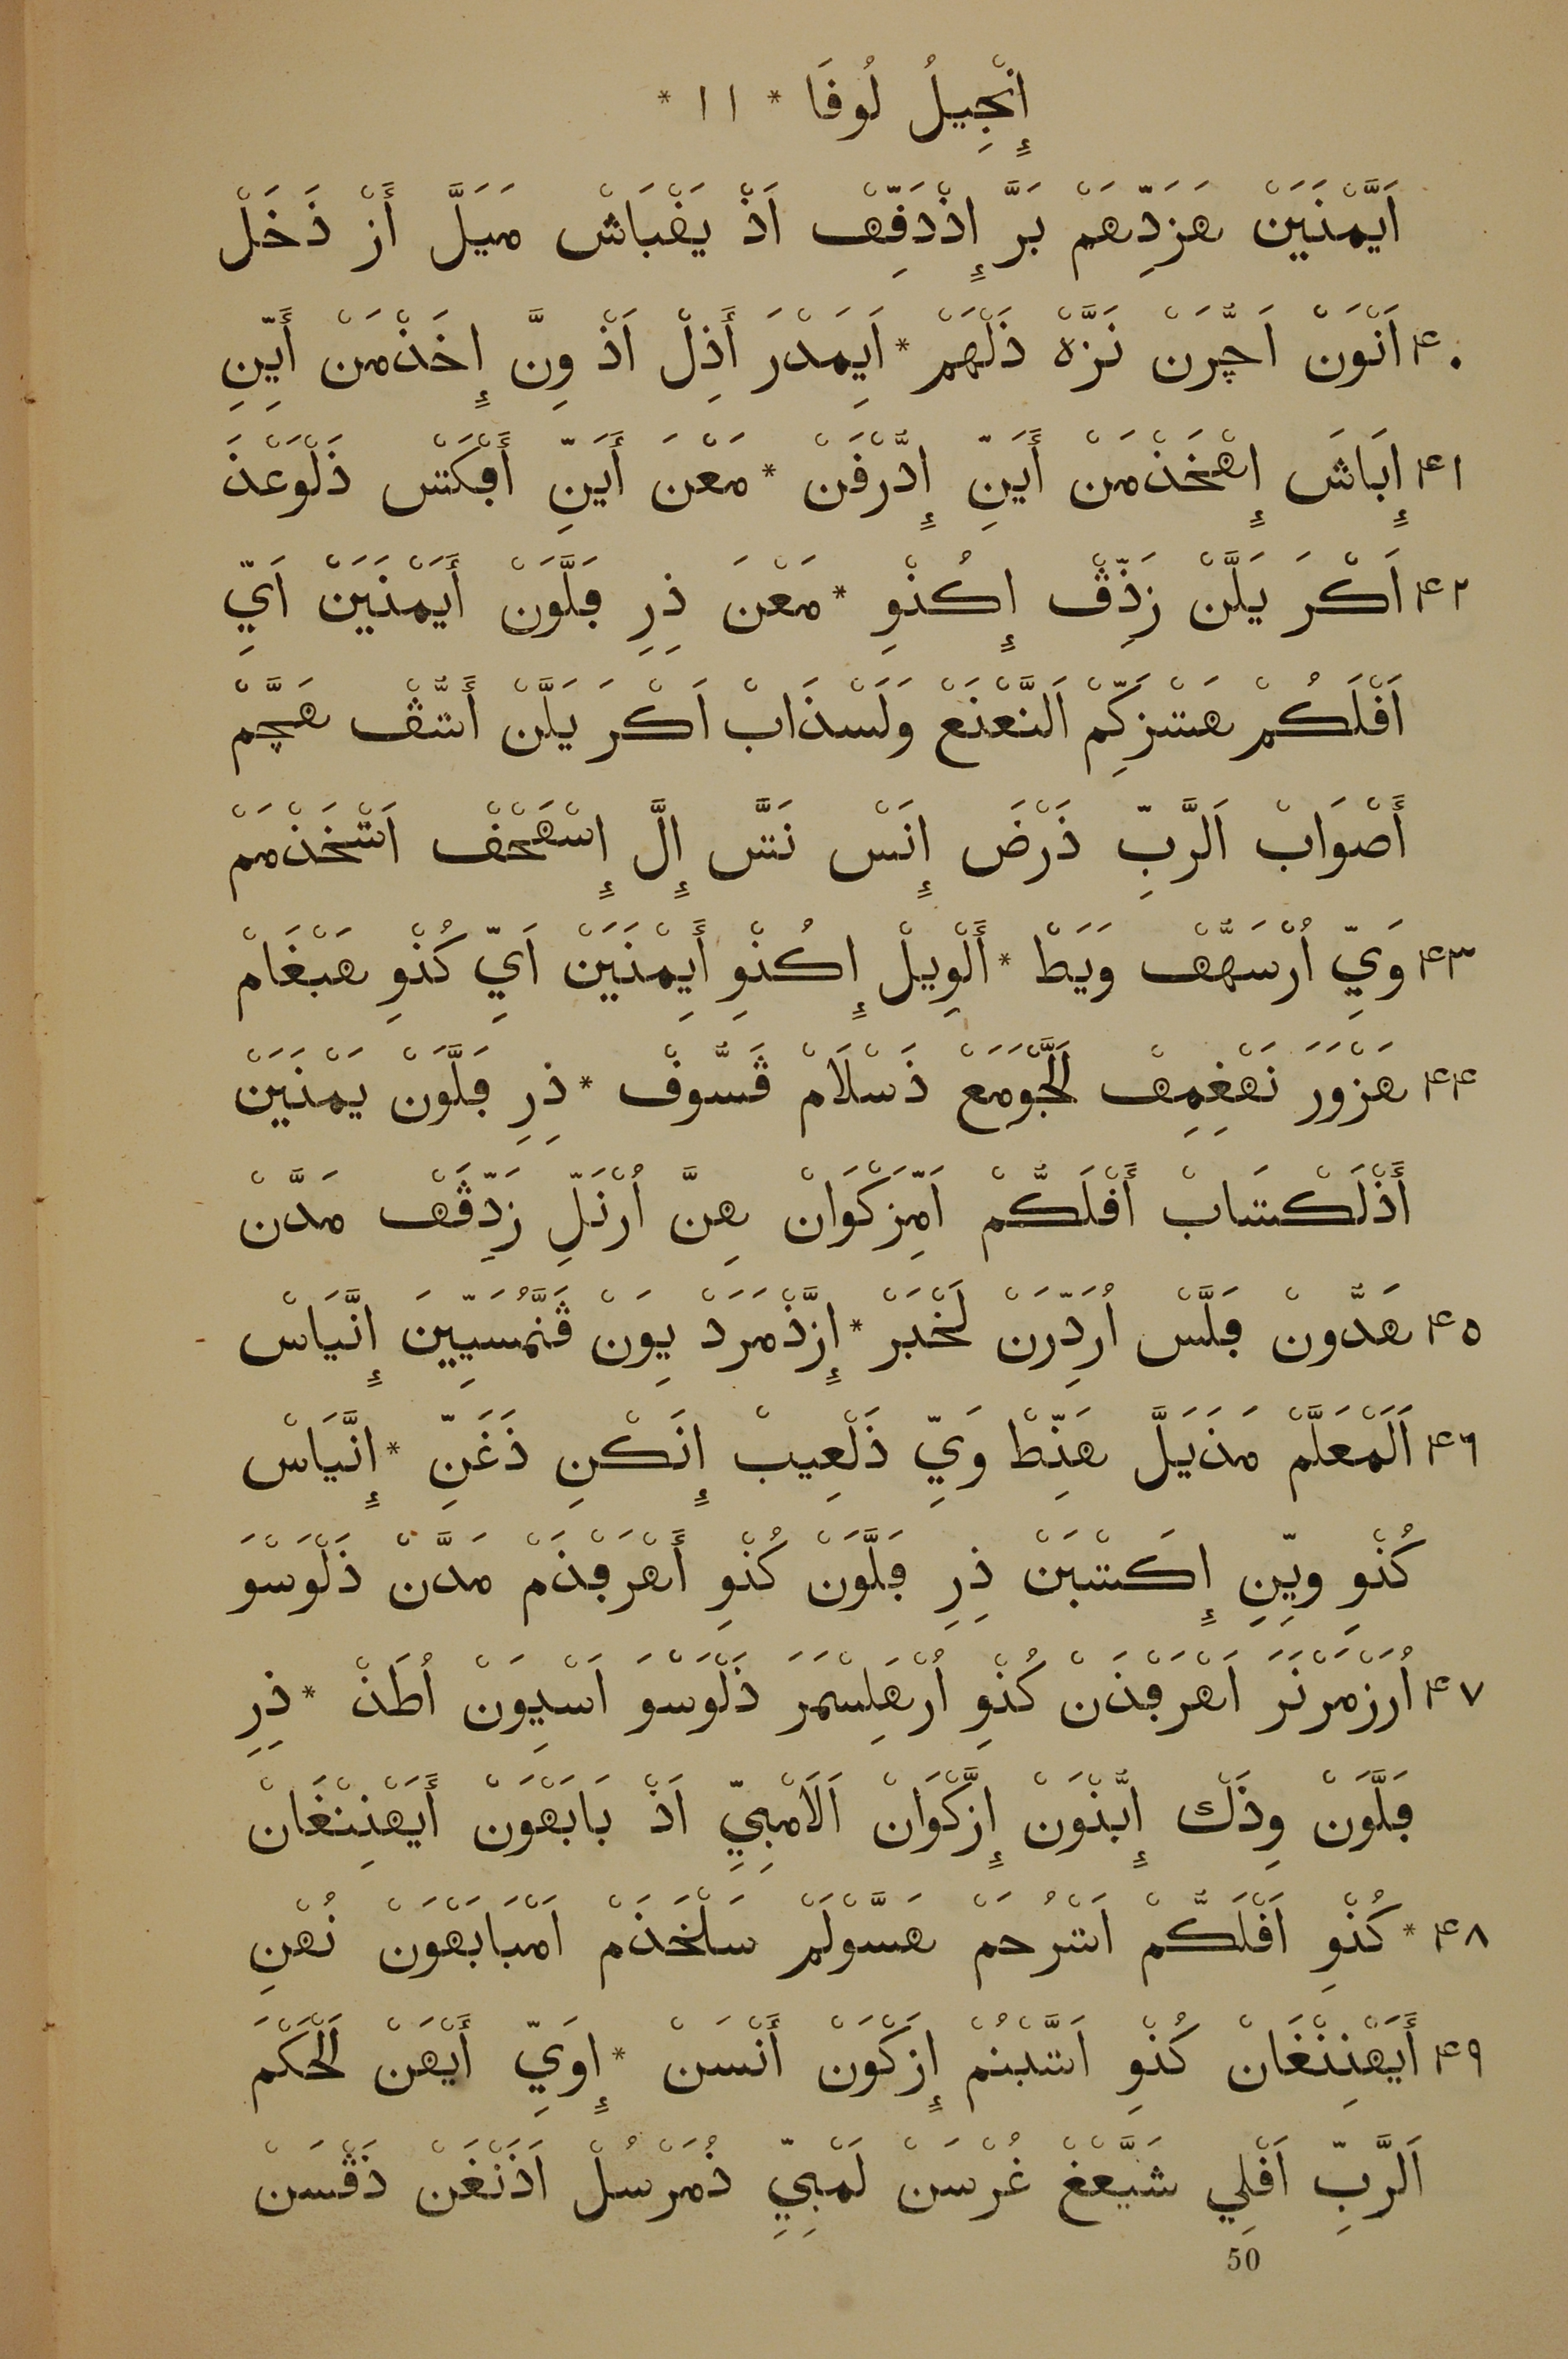 إِنْجِيلُ لُوقَا * ١١ *
اَيَّمْنَيَنْ هَزَدِّهَمْ بَرَّ إِذْدَفِّهْ اَذْ يَفْبَاشْ مَيَلَّ أَزْ ذَخَلْ
۴٠ اَنْوَنْ اَجُّرَنْ نَزَّهْ ذَلْهَمْ * اَيِمَدْرَ أَذِلْ اَذْ وِنَّ إِخَذْمَنْ أَيِّنِ
۴١ إِبَاشَ إِهْخَذْمَنْ أَيَنِّ إِدُّرْفَنْ * مَعْنَ أَيَنِّ أَفْكَتْ ذَلْوَعْذَ
۴٢ اَكْرَ يَلَّنْ زَذِّڤْ إِكُنْوِ * مَعْنَ ذِرِ فَلَّوَنْ أَيَمْنَيَنْ اَيِّ
اَفْلَكُمْ هَتْزَكِّمْ اَلنَّعْنَعْ وَلَسْذَابْ اَكْرَ يَلَّنْ أَتُّڤْ هَجَّمْ
أَصْوَابْ اَلرَّبِّ ذَرْضَ إِنَسْ نَتَّ إِلَّ إِسْهَحْفْ اَتْخَذْمَمْ
۴٣ وَيِّ اُرْسَهُّفْ وَيَطْ * أَلْوِيلْ إِكُنْوِ أَيِمْنَيَنْ اَيِّ كُنْوِ هَبْغَامْ
۴۴ هَزْوَرَ نَهْغِمِفْ لَجَّوَمَعْ ذَسْلَامْ ڤَسُّوفْ * ذِرِ فَلَّوَنْ يَمْنَيَنْ
أَذْلَكْتَابْ أَفْلَكُّمْ اَمِّزَكْوَانْ هِنَّ اُرْنَلِّ زَدِّڤَهْ مَدَّنْ
۴٥ هَدُّونْ فَلَّسْ اُرَدِّرَنْ لَخْبَرْ * إِزَّذْمَرَدْ يِوَنْ ڤَنَّمُسَيِّينَ إِنَّيَاسْ
۴٦ اَلَمْعَلَّمْ مَذَيَلَّ هَنِّطْ وَيِّ ذَلْعِيبْ إِنَكْنِ ذَغَنِّ * إِنَّيَاسْ
كُنْوِ وِيِّنِ إِكَتْبَنْ ذِرِ فَلَّوَنْ كُنْوِ أَهْرَفْذَمْ مَدَّنْ ذَلْوَسْوَ
۴٧ اُرَزْمَرْنَرَ اَهْرَفْذَنْ كُنْوِ اُرْهَلِسْمَرَ ذَلْوَسْوَ اَسْيِوَنْ اُطَذْ * ذِرِ
فَلَّوَنْ وِذَكْ إِبُّذْوَنْ إِزَّكْوَانْ اَلَامْبِيِّ اَذْ بَابَهْوَنْ أَيَهْنِنْغَانْ
۴٨ * كُنْوِ اَفْلَكُّمْ اَتْرُحَمْ هَسَّوْلَمْ سَلْخَذَمْ اَمْبَابَهْوَنْ نُهْنِ
۴٩ أَيَهْنِنْغَانْ كُنْوِ اَتَّبْنُمْ إِزَكْوَنْ أَنْسَنْ * إِوَيِّ أَيْهَنْ لَحْكَمَ
اَلرَّبِّ اَفْلِي شَيَّعْغْ غُرْسَنْ لَمْبِيِّ ذُمَرْسُلْ اَذَنْغَنْ ذَڤْسَنْ
50